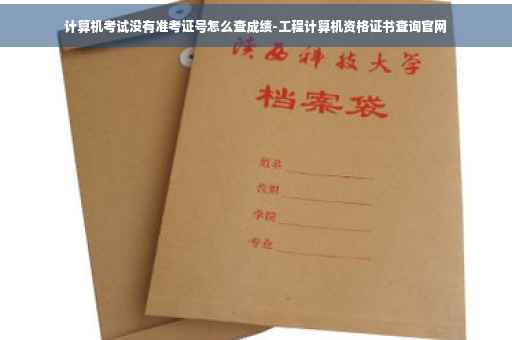 计算机考试没有准考证号怎么查成绩-工程计算机资格证书查询官网
陕西科技大学
档案袋
姓名
性别
学院
专业